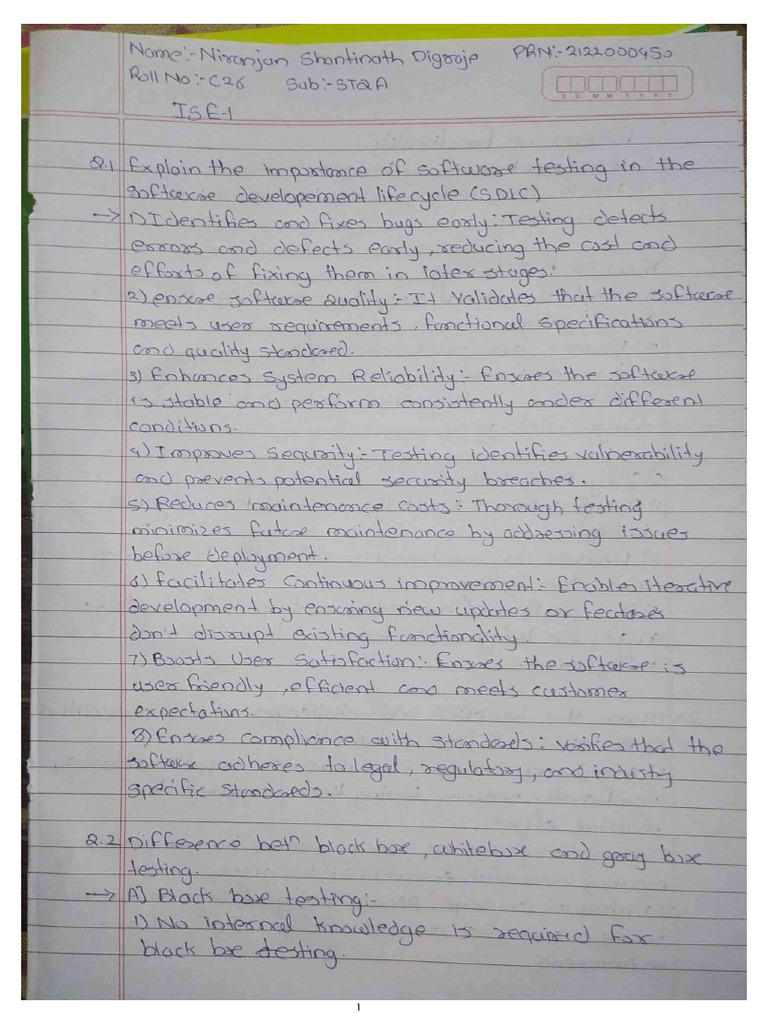 Name:- Niranjan Shantinath Digraje PRN:- 2122000450
Roll No:- C26 Sub:- STQA
ISE-1
D D M M Y Y Y Y
Q.1 Explain the importance of software testing in the
software developement lifecycle (SDLC)
→ 1) Identifies and fixes bugs early: Testing detects
errors and defects early, reducing the cost and
efforts of fixing them in later stages.
2) ensure software Quality:- It validates that the software
meets user requirements, functional specifications
and quality standared.
3) Enhances System Reliability:- Ensures the software
is stable and perform consistently under different
conditions.
4) Improves Sequrity:- Testing identifies vulnerability
and prevents potential security breaches.
5) Reduces maintenance costs:- Thorough testing
minimizes future maintenance by addressing issues
before deployment.
6) Facilitates continuous improvement:- Enables iterative
development by ensuring new updates or features
don't disrupt existing functionality.
7) Boosts User Satisfaction:- Ensures the software is
user friendly, efficient and meets customer
expectations.
8) Ensures compliance with standards: verifies that the
software adheres to legal, regulatory, and industry
specific standareds.
Q.2 Difference betn black box, whitebox and gray box
testing.
→ A] Black box testing:-
1) No internal knowledge is required for
black box testing.
1